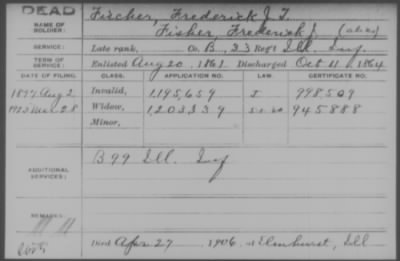 DEAD
NAME OF SOLDIER: Fischer, Frederick J. T.
Fisher, Frederick J. (alias)
SERVICE: Late rank, Co. B, 33 Reg't Ill. Inf.
TERM OF SERVICE: Enlisted Aug 20, 1861 Discharged Oct 11, 1864
DATE OF FILING. CLASS. APPLICATION NO. LAW. CERTIFICATE NO.
1897 Aug 2 Invalid, 1,195,659
Widow, 1,203,339 945888
Minor,
ADDITIONAL SERVICES: B 99 Ill. Inf
REMARKS:
Died Apr 27 1906, at Elmhurst, Ill